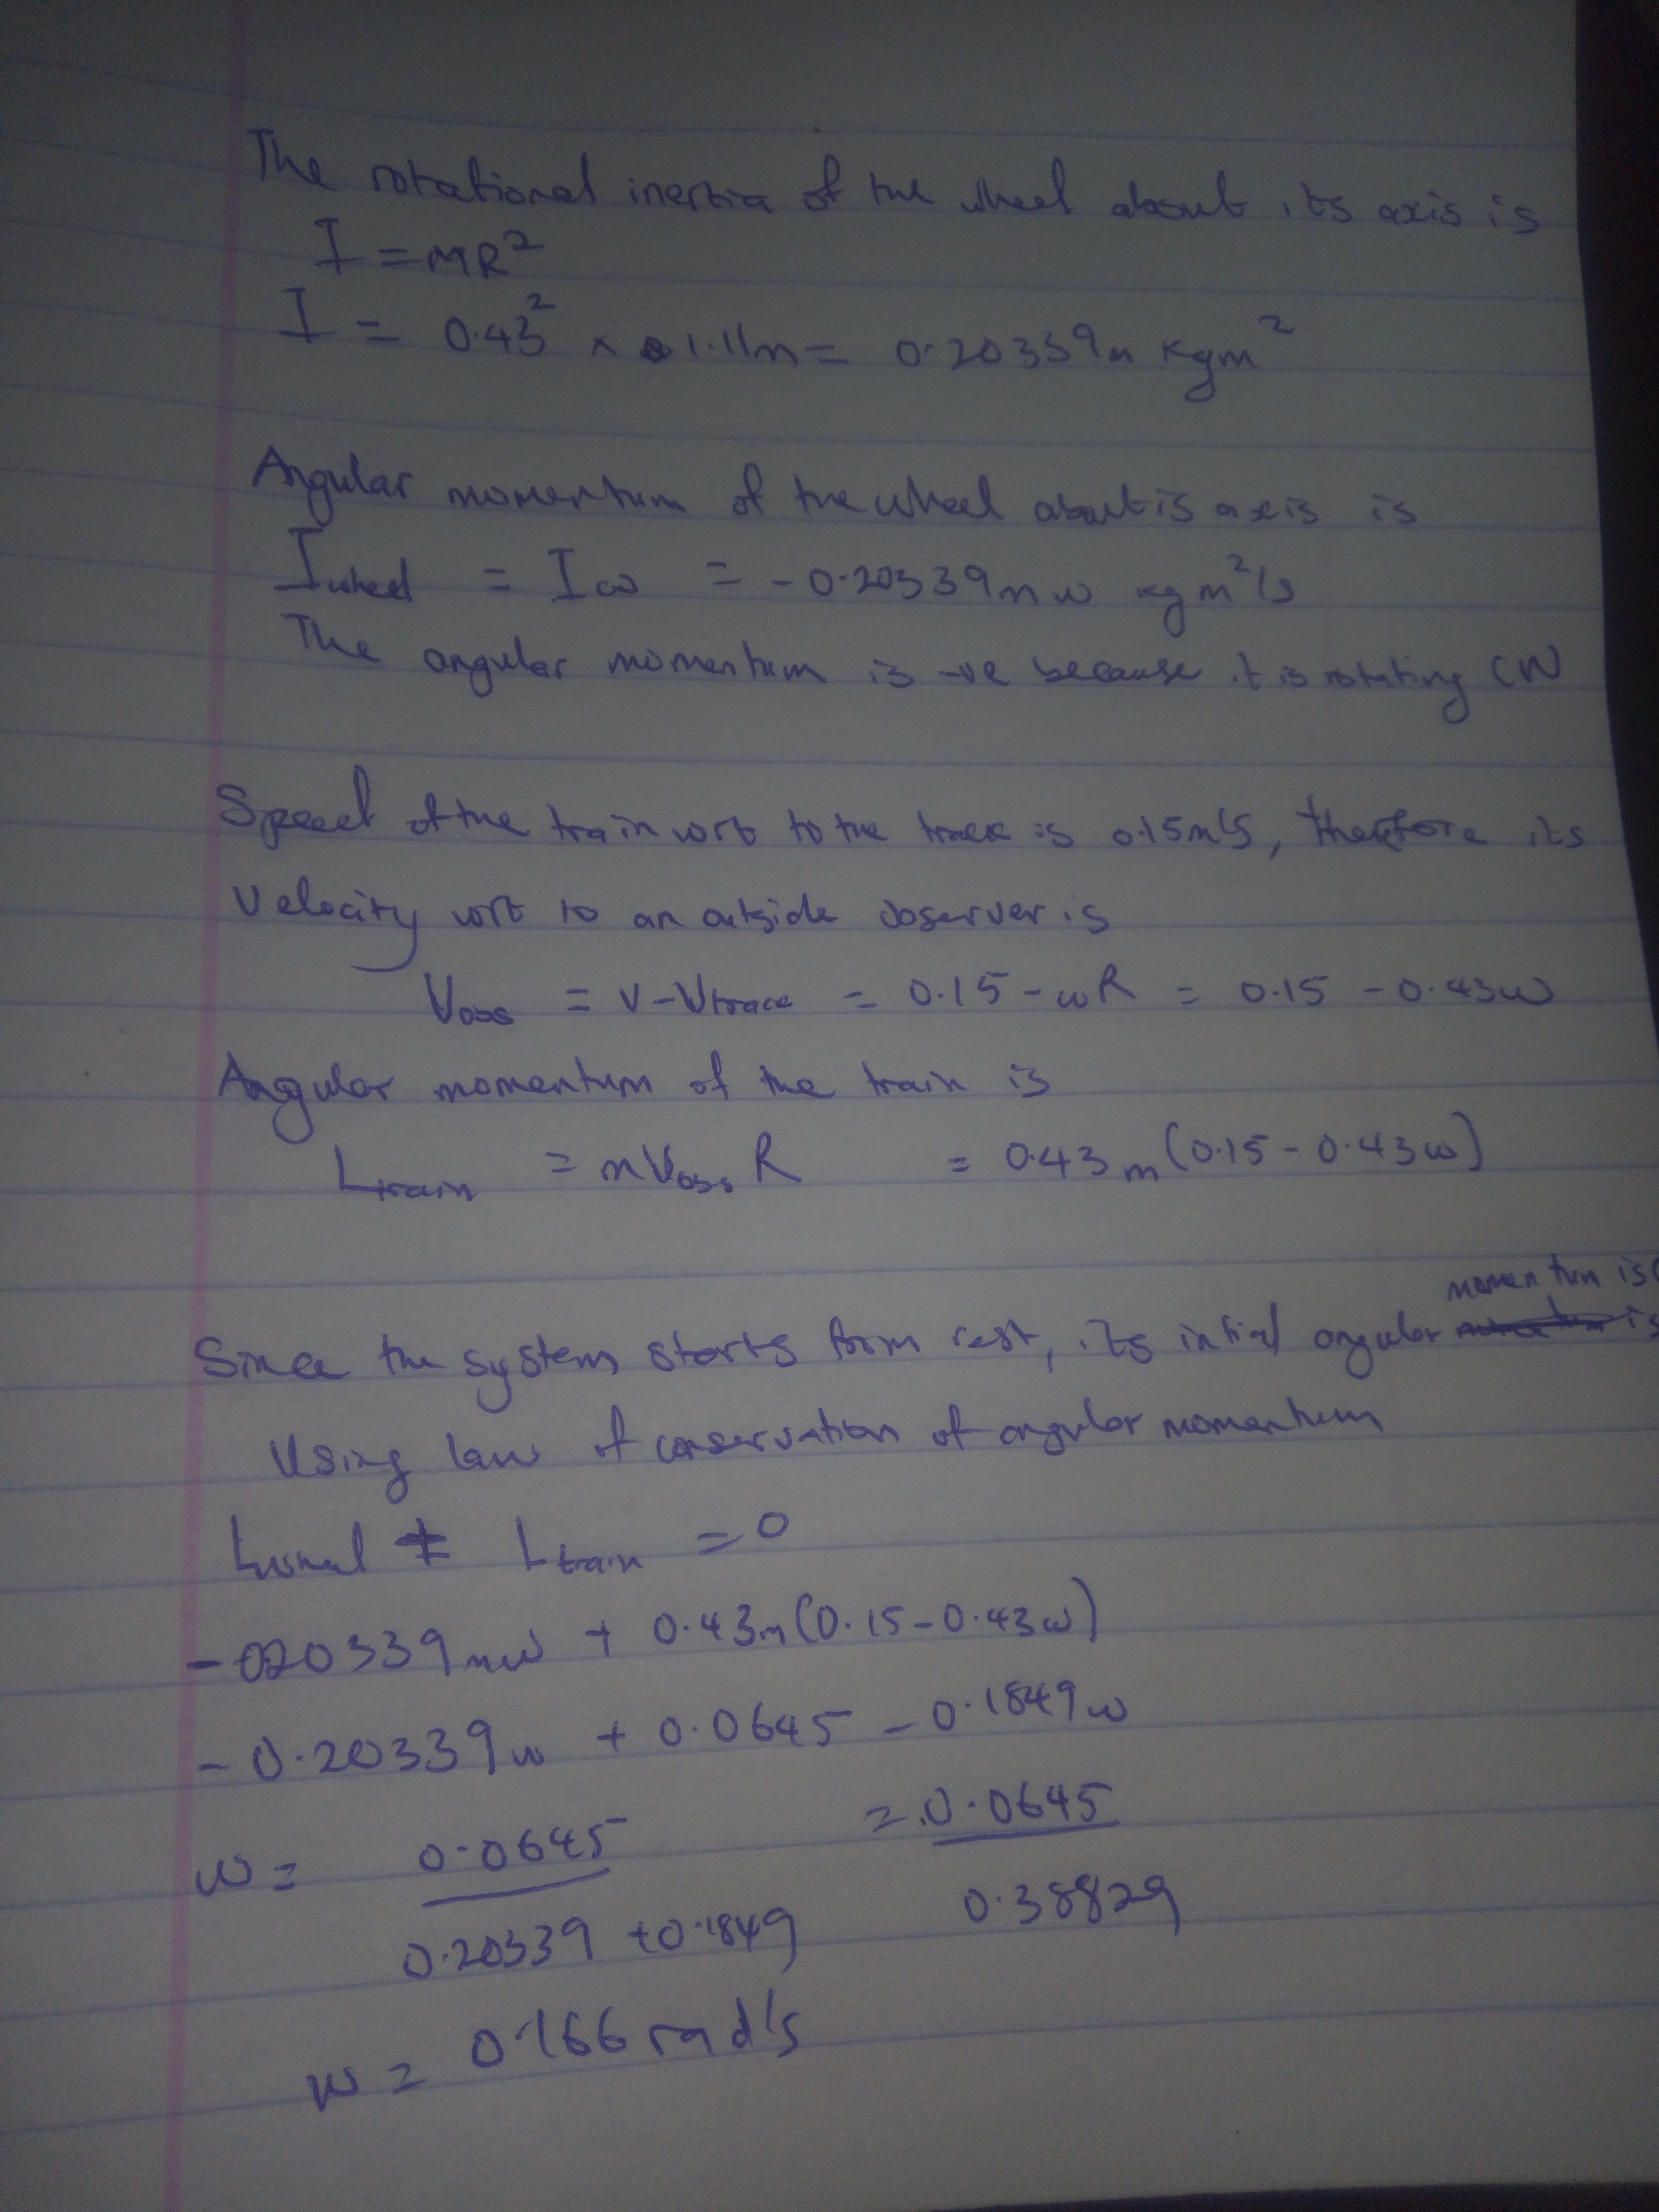 The rotational inertia of the wheel about its axis is
I = MR²
I = 0.43² × 1.11m = 0.20339m kgm²
Angular momentum of the wheel about is axis is
I wheel = Iω = -0.20339mω kgm²/s
The angular momentum is -ve because it is rotating CW
Speed of the train wrt to the track is 0.15m/s, therefore its
Velocity wrt to an outside observer is
Vobs = V - Vtrack = 0.15 - ωR = 0.15 - 0.43ω
Angular momentum of the train is
Ltrain = mVobs R = 0.43m(0.15 - 0.43ω)
momentum is
Since the system starts from rest, its initial angular is
Using law of conservation of angular momentum
Lwheel + Ltrain = 0
-0.20339mω + 0.43m(0.15 - 0.43ω)
-0.20339ω + 0.0645 - 0.1849ω
ω = 0.0645 = 0.0645
0.20339 + 0.1849 0.38829
ω = 0.166 rad/s